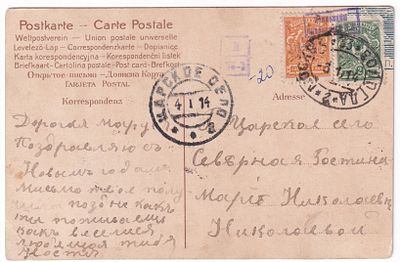 Postkarte – Carte Postale
Weltpostverein – Union postale universelle
Levelező-Lap – Correspondenzkarte – Dopisnice
Karta korespondencyjna – Korespondenční lístek
Briefkaart – Cartolina postale – Post card – Brefkort
Открытое письмо – Дописна Карта
TARJETA POSTAL
Korrespondenz
Adresse
-20
ЦАРСКОЕ СЕЛО
4 1 14
ВОЛОГДА
Дорогая
Поздравляю съ
Новымъ годомъ
письмо твое полу
какъ
ты поживаешь
какъ
тебя
Костя
Царская село
Северная Гостина
Марiе Николаевне
Николаевой